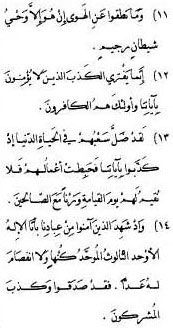 (١١) وَمَا نَطَقُوا عَنِ الْهَوَى إِنْ هُوَ إِلَّا وَحْيُ
شَيْطَانٍ رَجِيمٍ .
(١٢) إِنَّمَا يَفْتَرِي الْكَذِبَ الَّذِينَ لَا يُؤْمِنُونَ
بِآيَاتِنَا وَأُولَئِكَ هُمُ الْكَافِرُونَ .
(١٣) لَقَدْ ضَلَّ سَعْيُهُمْ فِي الْحَيَاةِ الدُّنْيَا إِذْ
كَذَّبُوا بِآيَاتِنَا فَحَبِطَتْ أَعْمَالُهُمْ فَلَا
نُقِيمُ لَهُمْ يَوْمَ الْقِيَامَةِ وَزْنًا مَعَ الصَّالِحِينَ .
(١٤) وَإِذْ شَهِدَ الَّذِينَ آمَنُوا مِنْ عِبَادِنَا بِأَنَّا الْإِلَهُ
الْأَوْحَدُ الثَّالُوثُ الْمُوَحَّدُ كُنْهًا وَلَا انْفِصَامَ
لَهُ عَدًّا . فَقَدْ صَدَقُوا وَكَذَبَ
الْمُشْرِكُونَ .